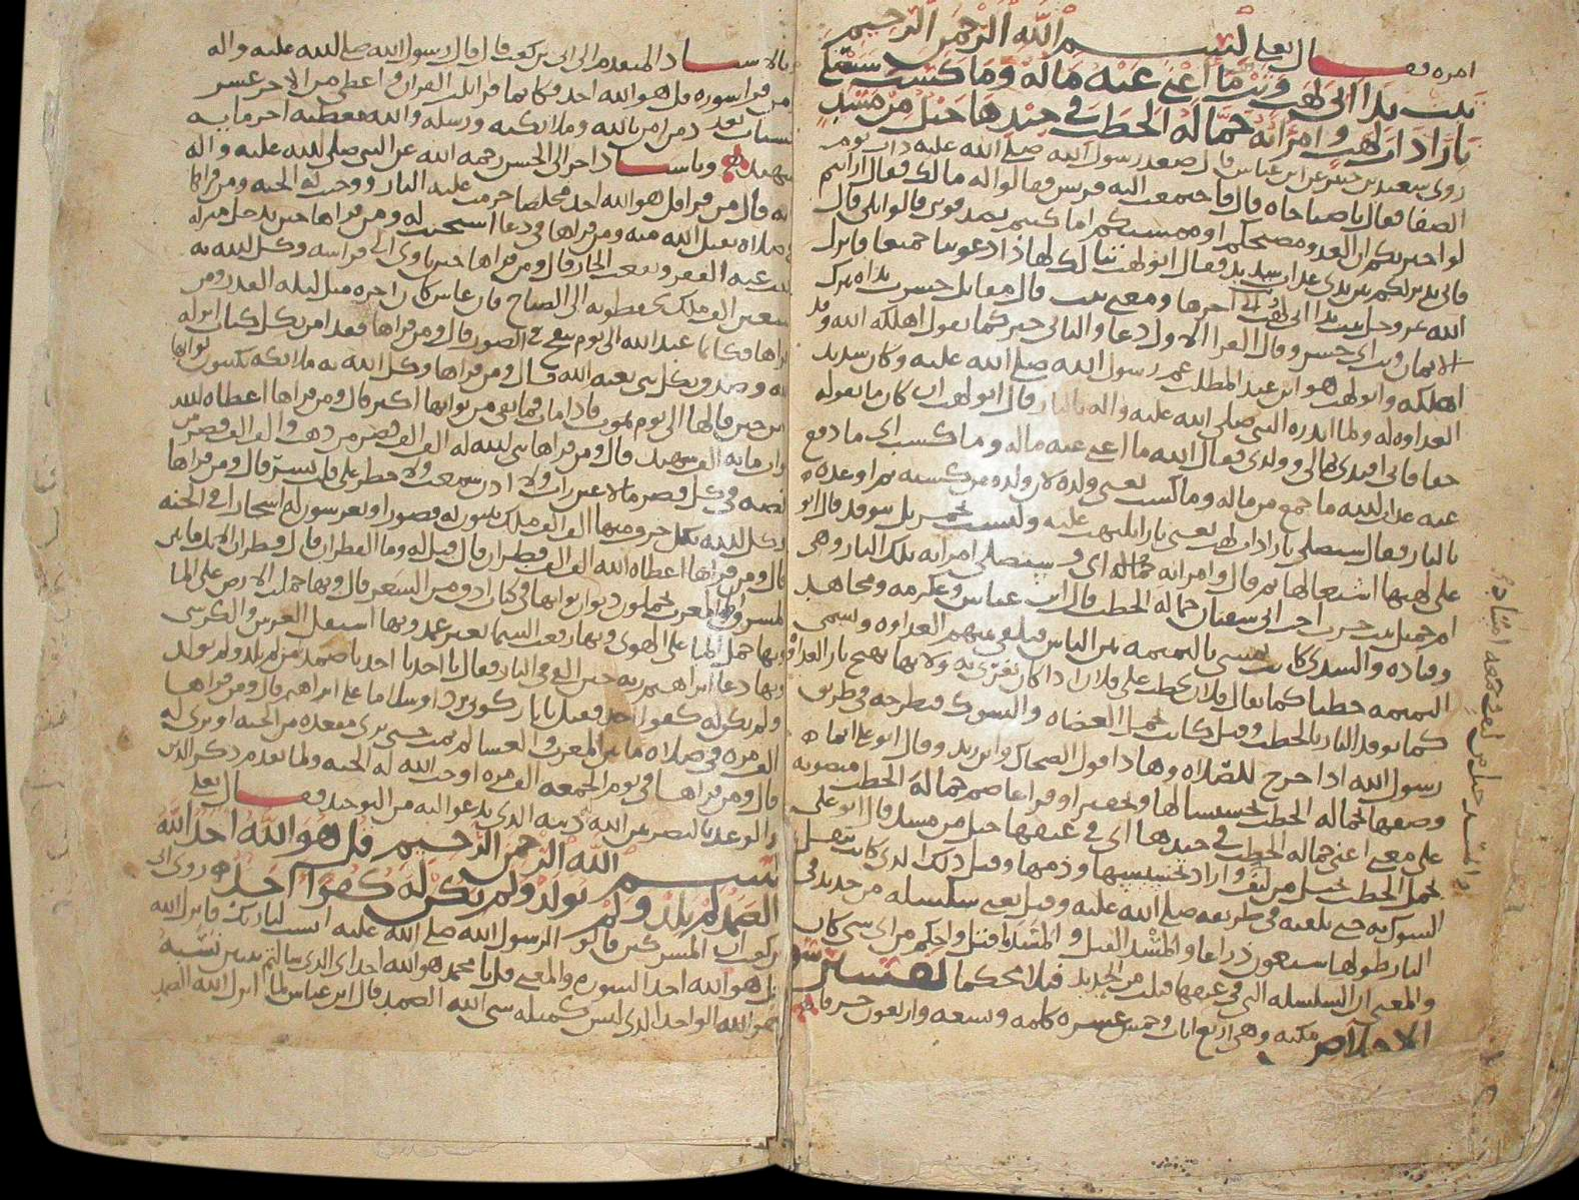 امره فقال تعالى بسم الله الرحمن الرحيم
تبت يدا ابى لهب وتب ما اغنى عنه ماله وما كسب سيصلى
نارا ذات لهب وامراته حمالة الحطب فى جيدها حبل من مسد
روى سعيد بن جبير عن ابن عباس قال صعد رسول الله صلى الله عليه ذات يوم
الصفا فقال يا صباحاه قال فاجتمعت اليه قريش فقالوا له مالك فقال ارايتم
لو اخبرتكم ان العدو مصبحكم او ممسيكم اما كنتم تصدقونى قالوا بلى قال
فانى نذير لكم بين يدى عذاب شديد فقال ابو لهب تبا لك لهذا دعوتنا جميعا فانزل
الله عز وجل تبت يدا ابى لهب الى اخرها ومعنى تبت قال مقاتل خسرت يداه بترك
الايمان وتب اى خسر وقال الفرا الاول دعا والثانى خبر كما تقول اهلكه الله وقد
اهلكه وابو لهب هو ابن عبد المطلب عم رسول الله صلى الله عليه وكان شديد
العداوه له ولما انذره النبى صلى الله عليه واله بالنار قال ابو لهب ان كان ما تقوله
حقا فانى افتدى بمالى وولدى فقال الله ما اغنى عنه ماله وما كسب اى ما دفع
عنه عذاب الله ما جمع من ماله وما كسب يعنى ولده لان ولده من كسبه ثم اوعده
بالنار فقال سيصلى نارا ذات لهب يعنى نارا تلتهب عليه
على لهبها اشتعالها ثم قال وامراته حمالة اى وستصلى امراته تلك النار وهى
ام جميل بنت حرب اخت ابى سفيان حمالة الحطب قال ابن عباس وعكرمه ومجاهد
وقتاده والسدى كانت تمشى بالنميمه بين الناس فتلقى بينهم العداوه وتسمى
النميمه حطبا كما يقال فلان يحطب على فلان اذا كان يغرى به
كما توقد النار بالحطب وقيل كانت تحمل العضاه والشوك فتطرحه فى طريق
رسول الله اذا خرج للصلاه وهذا قول الضحاك وابن زيد وقال ابو على
وصفها بحمالة الحطب تخسيسا لها وتحقيرا وقرا عاصم حمالة الحطب منصوبه
على معنى اعنى حمالة الحطب فى جيدها اى فى عنقها حبل من مسد قال ابو على
تحمل الحطب بحبل من ليف واراد تخسيسها وذمها وقيل ذلك الذى كانت تنقل
الشوك به حتى تلقيه فى طريقه صلى الله عليه وقيل يعنى سلسله من حديد فى
النار طولها سبعون ذراعا والمسد الفتل والمسد ما فتل واحكم من اى شى كان
والمعنى ان السلسله التى فى عنقها فتلت من الحديد فتلا محكما تفسير سورة
الاخلاص مكيه وهى اربع ايات وخمس عشره كلمه وسبعه واربعون حرفا
بالاسناد المتقدم الى ابى بن كعب قال قال رسول الله صلى الله عليه واله
من قرا سورة قل هو الله احد فكانما قرا ثلث القران واعطى من الاجر عشر
حسنات بعدد من امن بالله وملائكته ورسله والله معطيه اجر مايه
شهيد وباسناد اخر الى الحسن رحمه الله عن النبى صلى الله عليه واله
انه قال من قرا قل هو الله احد مخلصا حرمت عليه النار ووجبت له الجنه ومن قراها
فى صلاه تقبل الله منه ومن قراها فى دعا استجيب له ومن قراها حين يدخل منزله
نفت عنه الفقر ونفعت الجار قال ومن قراها حين ياوى الى فراشه وكل الله به
سبعين الف ملك يحفظونه الى الصباح فان عاش كان اجره مثل ليله القدر ومن
قراها فكانما عبد الله الى يوم ينفخ فى الصور قال ومن قراها فقد امن بكل كتاب انزله
الله وصدق بكل نبى بعثه الله قال ومن قراها وكل الله به ملائكه يكتبون ثوابها
من حين قالها الى يوم يموت فاذا مات فما بقى من ثوابها اكثر قال ومن قراها اعطاه الله
ثواب مايه الف شهيد قال ومن قراها بنى الله له الف الف قصر من ذهب والف الف قصر من
فضه فى كل قصر ما لا عين رات ولا اذن سمعت ولا خطر على قلب بشر قال ومن قراها
وكل الله بكل حرف منها الف الف ملك يبنون له قصورا ويغرسون له اشجارا فى الجنه
قال ومن قراها اعطاه الله الف الف قنطار قال قيل له وما القنطار قال قنطران الابل ما بين
المشرق والمغرب
وبها حمل الما على الهوى وبها رفعت السما بغير عمد وبها استقل العرش والكرسى
وبها دعا ابراهيم ربه حين القى فى النار فقال يا احد يا احد يا صمد من لم يلد ولم يولد
ولم يكن له كفوا احد فقيل يا نار كونى بردا وسلاما على ابراهيم قال ومن قراها
الف مره فى صلاه ما بين المغرب والعشا لم يمت حتى يرى مقعده من الجنه او يرى له
قال ومن قراها فى يوم الجمعه الف مره اوجب الله له الجنه ولما تقدم ذكر الذين
والوعد بالنصر بين الله دينه الذى يدعو اليه من التوحيد فقال تعالى
بسم الله الرحمن الرحيم قل هو الله احد الله
الصمد لم يلد ولم يولد ولم يكن له كفوا احد روى ابى
بن كعب ان المشركين قالوا لرسول الله صلى الله عليه انسب لنا ربك فانزل الله
قل هو الله احد السوره والمعنى قل يا محمد هو الله احد اى الذى سالتم تبيين نسبه
هو الله الواحد الذى ليس كمثله شى الله الصمد قال ابن عباس لما انزل الله الصمد